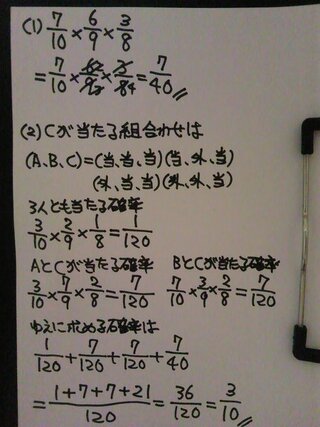 (1) 7/10 × 6/9 × 3/8
= 7/10 × 6̸2/9̸3 × 3̸/8̸4 = 7/40 〃
(2) Cが当たる組合わせは
(A、B、C)=(当、当、当)(当、外、当)
(外、当、当)(外、外、当)
3人とも当たる確率
3/10 × 2/9 × 1/8 = 1/120
AとCが当たる確率 BとCが当たる確率
3/10 × 7/9 × 2/8 = 7/120 7/10 × 3/9 × 2/8 = 7/120
ゆえに求める確率は
1/120 + 7/120 + 7/120 + 7/40
= 1+7+7+21/120 = 36/120 = 3/10 〃